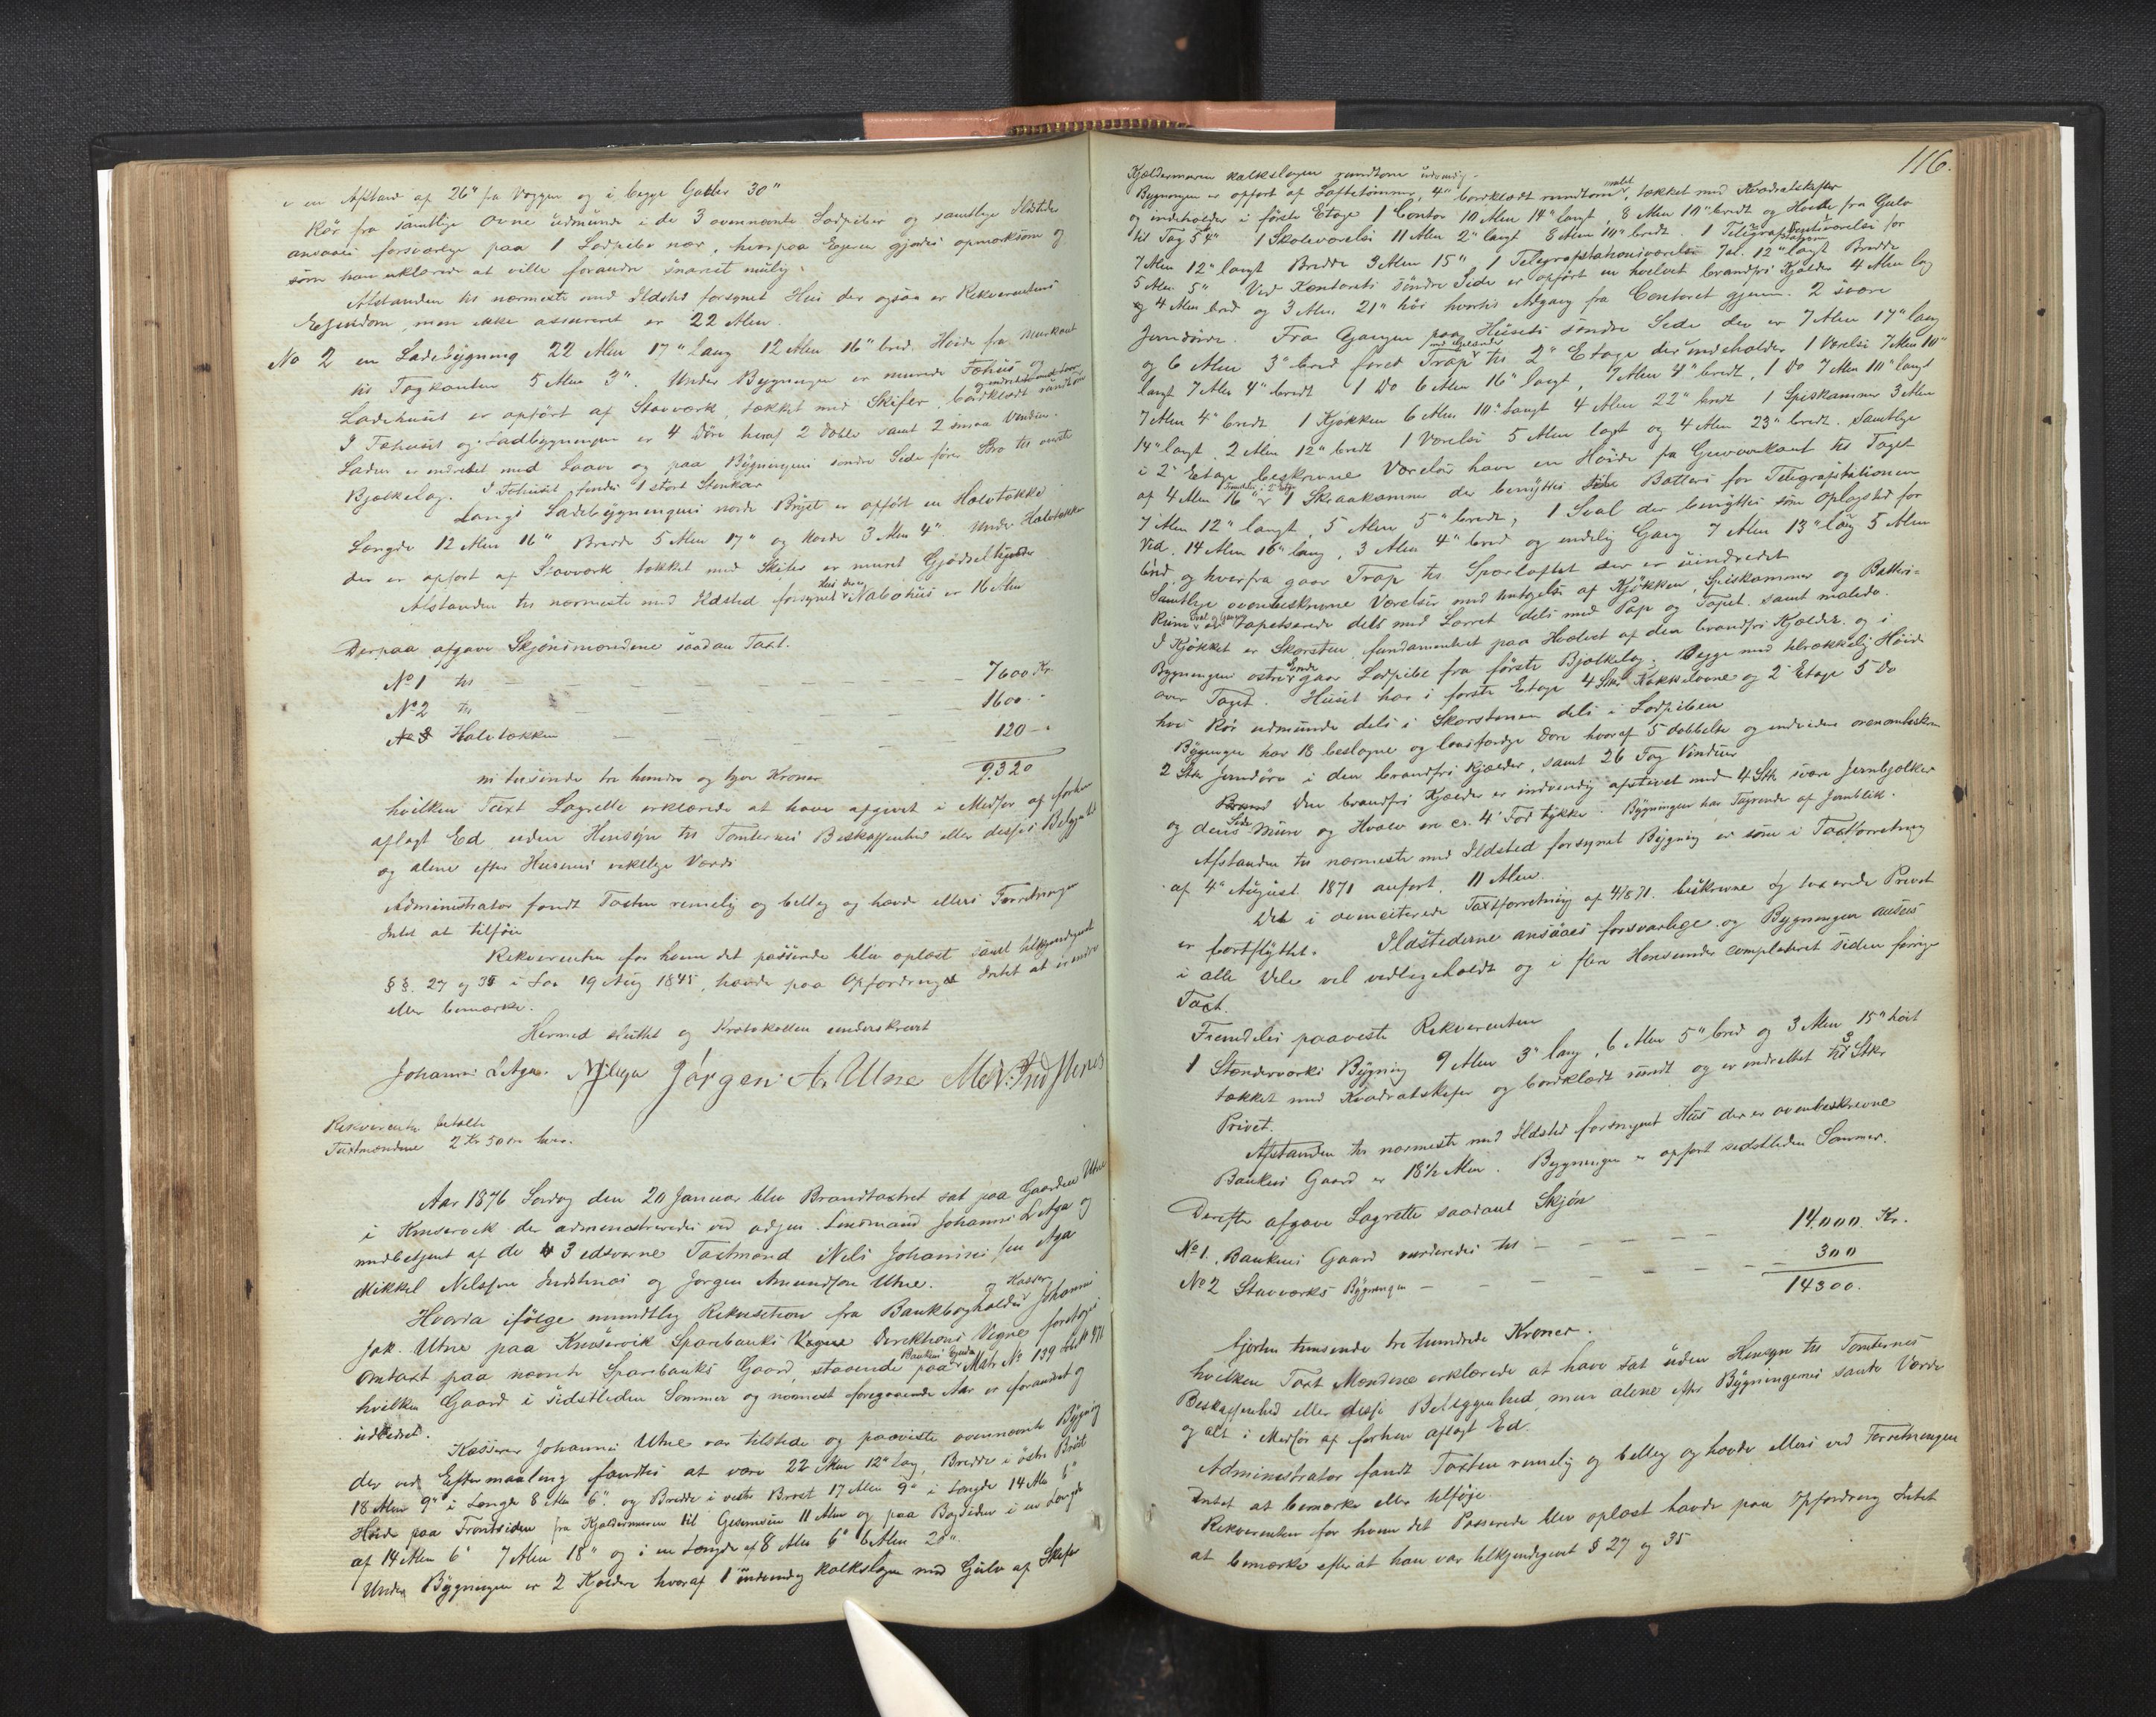 en Afstand af 26" fra Væggen og i begge Gavler 30"
Rør fra samtlige Ovne udmunde i de 3 ovennævnte Lodpiber og samtlige Ildsteder
ansaaes forsvarlige paa 1 Lodpibe nær, hvorpaa Eieren gjordes opmærksom og
som han erklærede at ville forandre snarest mulig.
Afstanden til nærmeste med Ildsted forsynet Hus der ogsaa er Rekvirentens
Eiendom, men ikke assureret er 22 Alen.
No 2 en Ladebygning 22 Alen 17" lang 12 Alen 16" bred. Høide fra Murkant
til Tagkanten 5 Alen 3". Under Bygningen er murede Fæhus og
Ladehuset er opført af Stavværk, tækket med Skifer, bordklædt rundtom
I Fæhuset og Ladbygningen er 4 Døre heraf 2 doble samt 2 smaa Vinduer.
Laden er indredet med Laave og paa Bygningens søndre Side fører Bro til øverste
Bjælkelag. I Fæhuset findes 1 stort Stenkar
Langs Ladebygningens nordre Bryst er opført en Halvtække
Længde 12 Alen 16" Bredde 5 Alen 17" og Høide 3 Alen 4". Under Halvtækken
der er opført af Stavværk tækket med Skifer er muret Gjødselkjælder
Afstanden til nærmeste med Ildsted forsynet Hus Nabohus er 16 Alen
Derpaa afgave Skjønsmændene saadan Taxt.
No 1 til — — — — — 7600 Kr.
No 2 til — — — — — 1600 "
No 3 Halvtækken — — — — 120 "
ni tusinde tre hundre og tyve Kroner 9320
hvilken Taxt Lagrette erklærede at have afgivet i Medfør af forhen
aflagt Ed uden Hensyn til Tomternes Beskaffenhed eller disses Beliggenhed
og alene efter Husenes virkelige Værdi
Administrator fandt Taxten rimelig og billig og havde ellers Forretningen
Intet at tilføie
Rekvirenten for hvem det passerede blev oplæst samt tilkjendegivet
§§. 27 og 35 i Lov 19 Aug 1845, havde paa Opfordring Intet at erindre
eller bemærke.
Hermed sluttet og Protokollen underskrevet
Johannes L Aga. N J Aga Jørgen A. Utne M. N. Indstenes
Rekvirenten betalte
Taxtmændene 2 Kr 50 øre hver.
Aar 1876 Lørdag den 20 Januar blev Brandtaxtret sat paa Gaarden Utne
i Kinservik der administreredes ved adjun. Lensmand Johannes L Aga og
medbetjent af de 3 edsvorne Taxtmænd Nels Johannesen Aga
Mikkel Nelssen Indstenes og Jørgen Amundsen Utne.
Hvorda ifølge mundtlig Rekvisition fra Bankbogholder og Kasserer Johannes
Jak. Utne paa Kinservik Sparebanks Direktions Vegne foretoges
Omtaxt paa nævnte Sparebanks Gaard, staaende paa Bankens Eiendom Matr No 139
hvilken Gaard i sidstleden Sommer og nærmest foregaaende Aar er forandret og
udbedret.
Kasserer Johannes Utne var tilstede og paaviste ovennævnte Bygning
der ved Eftermaaling fandtes at være 22 Alen 12" lang, Bredde i østre Bryst
18 Alen 9" i Længde 8 Alen 6". og Bredde i vestre Bryst 17 Alen 9" i Længde 14 Alen 6"
Høide paa Frontsiden fra Kjældermuren til Gesimsen 11 Alen og paa Bagsiden i en Længde
af 14 Alen 6" 7 Alen 18" og i en Længde af 8 Alen 6" 6 Alen 20".
Under Bygningen er 2 Kjældere hvoraf 1 indvendig kalkslagen med Gulv af Skifer
116.
Kjældermuren kalkslagen rundtom udvendig.
Bygningen er opført af Laftetømmer, 4" bordklædt rundtom malet, tækket med Kvadratskifer
og indeholder i første Etage 1 Contor 10 Alen 14" langt, 8 Alen 10" bredt og Høide fra Gulv
til Tag 5 4" 1 Skoleværelse 11 Alen 2" langt 8 Alen 10" bredt. 1 Venteværelse for
7 Alen 12" langt Bredde 3 Alen 15", 1 Telegrafstationsværelse 7 al. 12" langt Bredde
5 Alen 5" Ved Kontorets søndre Side er opført en hvelvet brandfri Kjælder 4 Alen lag
og 4 Alen bred og 3 Alen 21" høi hvortil Adgang fra Contoret gjenn. 2 svære
Jerndøre. Fra Gangen paa Husets søndre Side der er 7 Alen 17" lang
og 6 Alen 3" bred fører Trap til 2" Etage der indeholder 1 Værelse 7 Alen 10"
langt 7 Alen 4" bredt 1 Do 6 Alen 16" langt, 7 Alen 4" bredt, 1 Do 7 Alen 10" langt
7 Alen 4" bredt 1 Kjøkken 6 Alen 10" langt 4 Alen 22" bredt 1 Spiskammer 3 Alen
14" langt 2 Alen 12" bredt 1 Værelse 5 Alen lagt og 4 Alen 23" bredt. Samtlige
i 2" Etage beskrevne Værelser have en Høide fra Gulvkant til Taget
af 4 Alen 16" Fremdeles i 2 Etage 1 Skraakammer der benyttes Batteri for Telegrafstationen
7 Alen 12" langt, 5 Alen 5" bredt, 1 Sval der benyttes som Oplagsted for
Ved. 14 Alen 16" lang, 3 Alen 4" bred og endelig Gang 7 Alen 13" lag 5 Alen
bred og hvorfra gaar Trap til Spærloftet der er uindredet
Samtlige ovenbeskrevne Værelser med Undtagelse af Kjøkken, Spiskammer og Batteri=
Rum Sval og Gang er tapetserede dels med Lærret dels med Pap og Tapet samt malede.
I Kjøkket er Skorsten fundamenteret paa Hvelvet af den brandfri Kjælder og i
Bygningens østre Ende gaar Lodpibe fra første Bjælkelag. Begge med tilrækkelig Høide
over Taget. Huset har i første Etage 4 Stk Kakkelovne og 2" Etage 5 Do
hvis Rør udmunde dels i Skorstenen dels i Lodpiben
Bygningen har 18 beslagne og laasfærdige Døre hvoraf 5 dobbelte og endvidere ovenombeskrevne
2 Stk Jerndøre i den brandfri Kjælder, samt 26 Fag Vinduer
Den brandfri Kjælder er indvendig afstivet med 4 Stk svære Jernbjælker
og dens Side Mure og Hvælv ere ca. 4 Fod tykke. Bygningen har Tagrende af Jernblik.
Afstanden til nærmeste med Ildsted forsynet Bygning er som i Taxtforretning
af 4" August 1871 anført, 11 Alen.
Det i ovenciterede Taxtforretning af 4/8 71. beskrevne og taxerede Privet
er bortflyttet. Ildstederne ansaaes forsvarlige og Bygningen ansees
i alle Dele vel vedligeholdt og i flere Hensender completeret siden forrige
Taxt.
Fremdeles paaviste Rekvirenten
1 Stænderværks Bygning 9 Alen 3" lang, 6 Alen 5" bred og 3 Alen 15" høit
tækket med Kvadratskifer og bordklædt rundt og er indrettet til 3 Stkr
Privet.
Afstanden til nærmeste med Ildsted forsynet Hus der er ovenbeskrevne
Bankens Gaard er 18½ Alen. Bygningen er opført sidstleden Sommer.
Derefter afgave Lagrette saadant Skjøn
No 1. Bankens Gaard vurderedes til — — — — 14.000. Kr.
No 2 Stavværks Bygningen — — — — — 300
14300.
fjorten tusende tre hundrede Kroner.
hvilken Taxt Mændene erklærede at have sat uden Hensyn til Tomternes
Beskaffenhed eller disses Beliggenhed, men alene efter Bygningernes sande Værdi
og alt i Medfør af forhen aflagt Ed.
Administrator fandt Taxten rimelig og billig og havde ellers ved Forretningen
Intet at bemærke eller tilføje.
Rekvirenten for hvem det Passerede blev oplæst havde paa Opfordring Intet
at bemærke efter at han var tilkjendegivet § 27 og 35